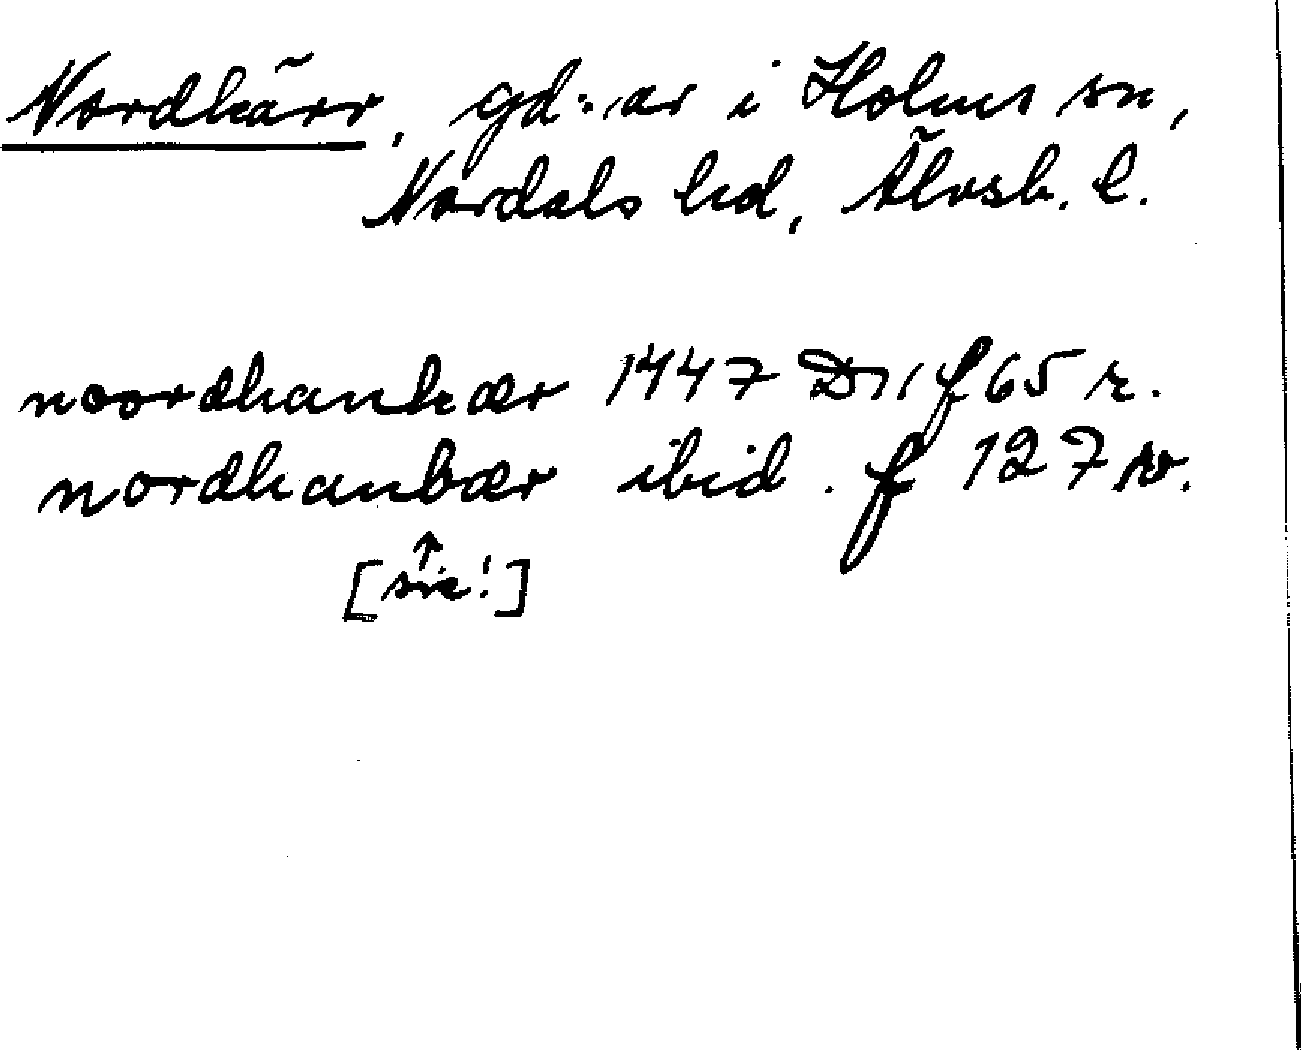 Nordkärr, gd:ar i Holms sn,
Nordals hd, Älvsb. l.
noordhankær 1447 D 11 f 65 r.
nordhanbær ibid. f 127 v.
↑
[sic!]